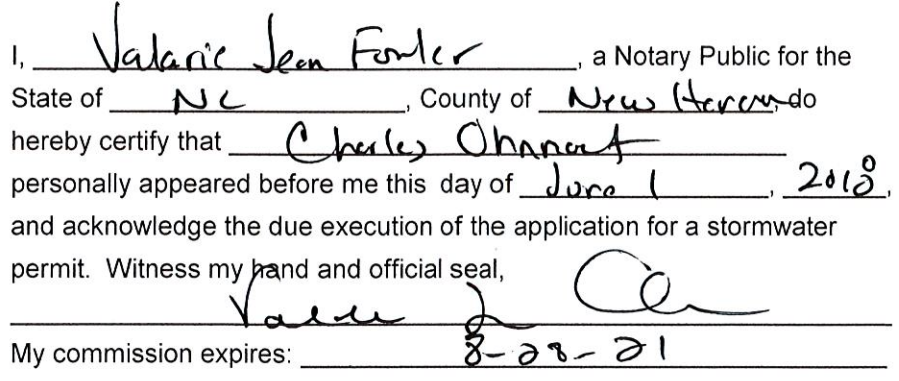 I, Valarie Jean Fowler, a Notary Public for the
State of NC, County of New Hanover, do
hereby certify that Charles
personally appeared before me this day of June 1, 2018,
and acknowledge the due execution of the application for a stormwater
permit. Witness my hand and official seal,
My commission expires: 8-28-21